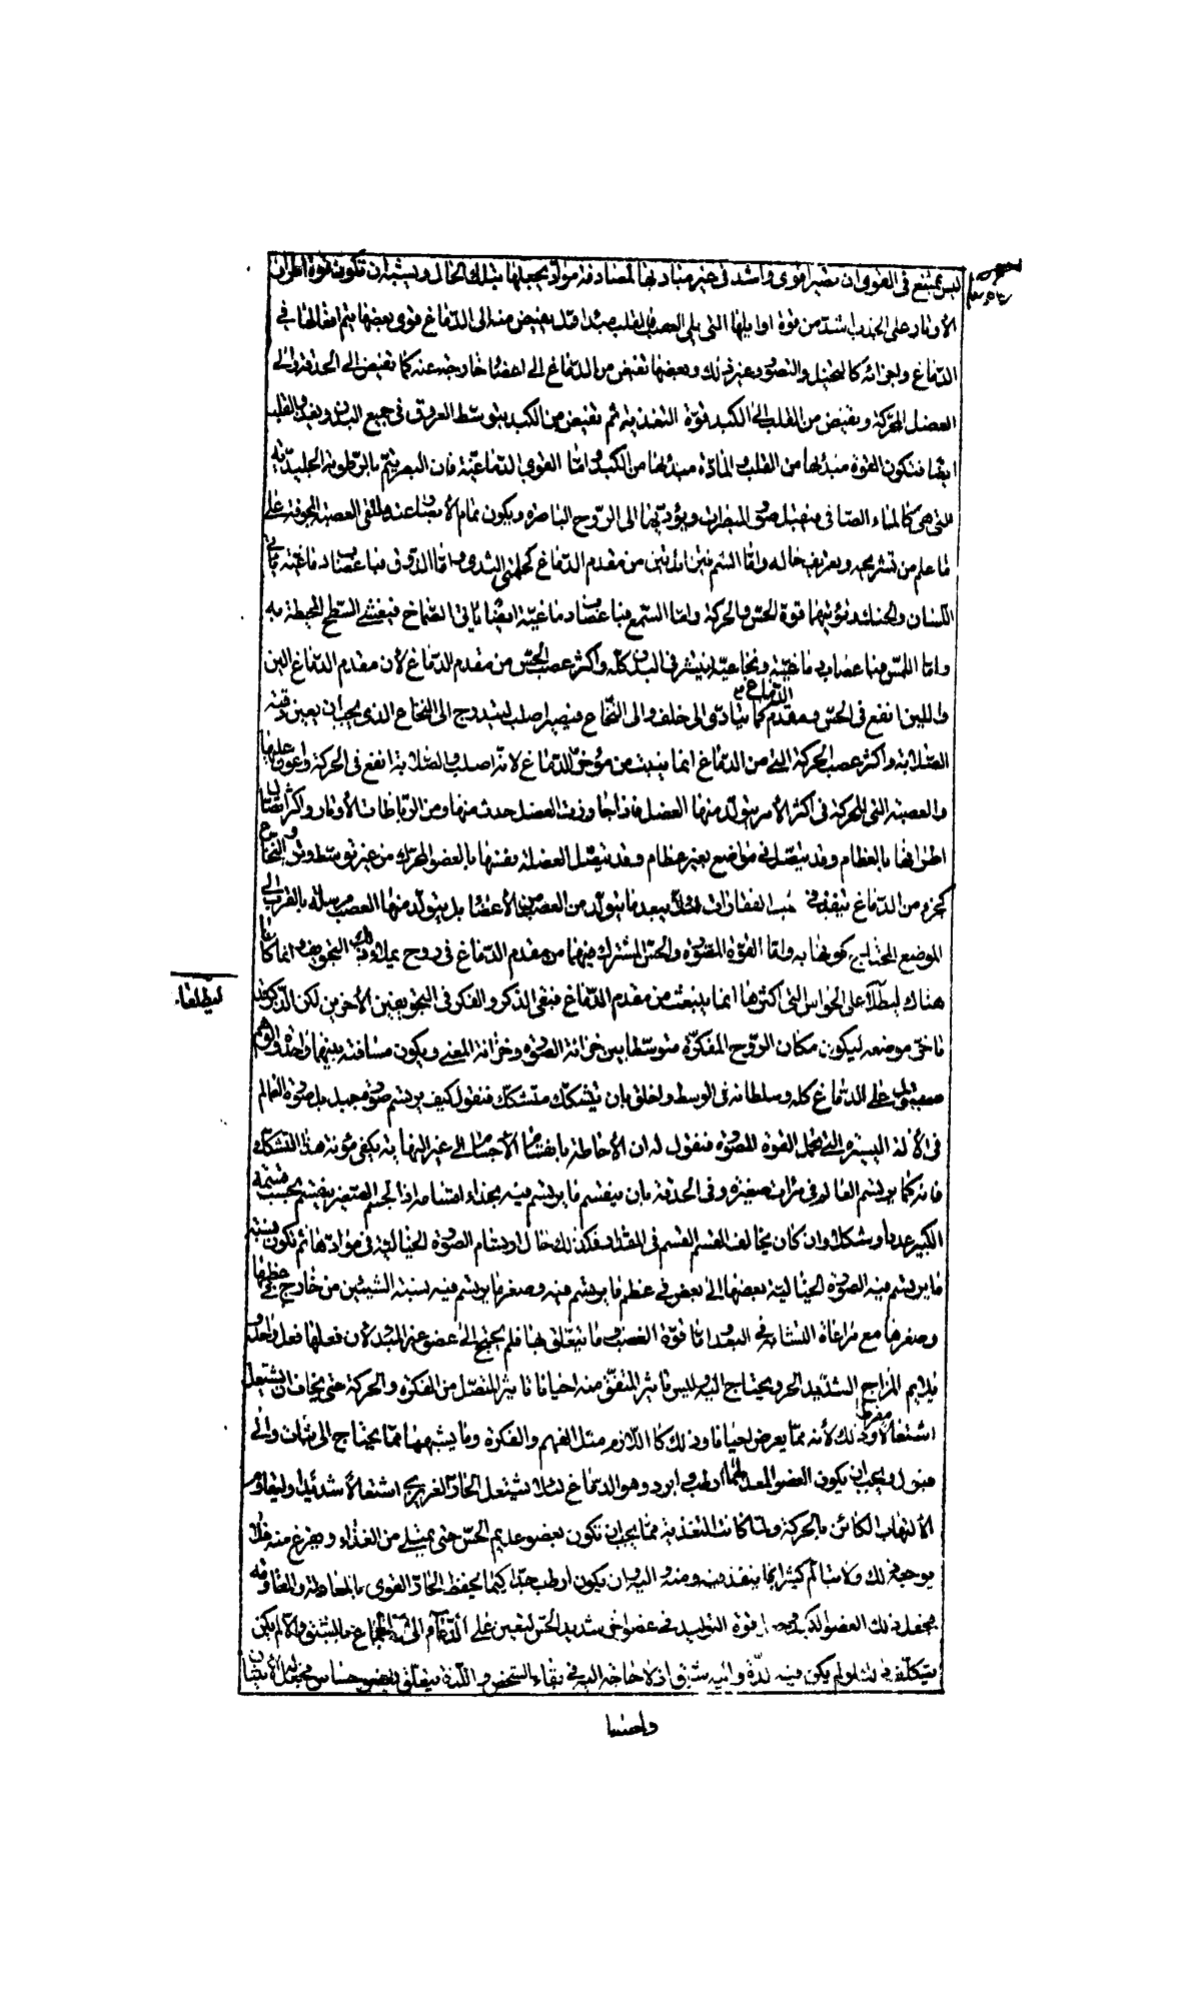 ليس يمتنع فى القوى ان تصير اقوى واشد فى غير مباديها لمصادفة مواد يجعلها بتلك الحال ويشبه ان تكون قوة اطراف
الأوتار على الجذب اشد من قوة اوايلها التى يلى العصب فالقلب مبدا قد يفيض منه الى الدماغ قوى بعضها يتم افعالها فى
الدماغ واجزائه كالتخيل والتصور وغير ذلك وبعضها تفيض من الدماغ الى اعضاء خارجة عنه كما تفيض الى الحدقة والى
العضل المحركة ويفيض من القلب الى الكبد قوة التغذية ثم تفيض من الكبد بتوسط العروق فى جميع البدن ويغذو القلب
ايضا فتكون القوة مبدئها من القلب والمادة مبدئها من الكبد واما القوى الدماغية فان البصر يتم بالرطوبة الجليدية
التى هى كالماء الصافى فيقبل صور المبصرات ويؤديها الى الروح الباصرة ويكون تمام الأبصار عند ملتقى العصبة المجوفة على
ما علم من تشريحه وتعريف حاله واما الشم فبزائدتين من مقدم الدماغ كحلمتى الثدى واما الذوق فباعصاب دماغية تأتى
اللسان والحنك وتؤتيهما قوة الحس والحركة واما السمع فباعصاب دماغية ايضا ياتى الصماخ فيغشى السطح المحيطة به
واما اللمس فباعصاب دماغية ونخاعية ينتشر فى البدن كله واكثر عصب الحس من مقدم الدماغ لأن مقدم الدماغ الين
واللين انفع فى الحس ومقدم الدماغ كما يتادى الى خلف والى النخاع فيصير اصلب ليتدرج الى النخاع الذى يجب ان يعين دقته
الصلابة واكثر عصب الحركة التى من الدماغ انما ينبت من مؤخر الدماغ لأنه اصلب والصلابة انفع فى الحركة واعون عليها
والعصبة التى للحركة فى اكثر الأمر يتولد منها العضل فاذا جاوزت العضل حدث منها ومن الرباطات الأوتار واكثر اتصال
اطرافها بالعظام وقد يتصل فى مواضع بغير عظام وقد يتصل العضلة نفسها بالعضو المحرك من غير توسط وتر والنخاع
كجزء من الدماغ ينفذ فى ثقب الفقارات لئلا يبعد ما يتولد من العصب من الأعضاء بل يتولد منها العصب مرسلة بالقرب الى
الموضع المحتاج كونها به واما القوة المصورة والحس المشترك فهما من مقدم الدماغ فى روح يملأ ذلك التجويف وانما كانا
هناك ليطلا على الحواس التى اكثرها انما ينبعث من مقدم الدماغ فبقى الذكر والفكر فى التجويفين الآخرين لكن الذكر قد
تاخر موضعه ليكون مكان الروح المفكرة متوسطا بين خزانة الصورة وخزانة المعنى ويكون مسافته بينهما واحدة والوهم
مستول على الدماغ كله وسلطانه فى الوسط واخلق بان يتشكك متشكك فنقول كيف يرتسم صورة جبل بل صورة العالم
فى الآلة اليسيرة التى تحمل القوة المصورة فنقول له ان الأحاطة بانقسام الأجسام الى غير النهاية يكفى مؤنة هذا التشكك
فانه كما يرتسم العالم فى مرآة صغيرة وفى الحدقة بان ينقسم ما يرتسم فيه بحذاء اقسامه اذ الجسم الصغير ينقسم بحسب قسمة
الكبير عددا وشكلا وان كان يخالف القسم القسم فى المقدار فكذلك حال ارتسام الصورة الخيالية فى موادها ثم تكون نسبة
ما يرتسم فيه الصورة الخيالية بعضها الى بعض فى عظم ما يرتسم فيه وصغر ما يرتسم فيه نسبة الشيئين من خارج فى عظمها
وصغرها مع مراعاة التشابه فى البعد واما قوة الغضب وما يتعلق بها فلم يحتج الى عضو غير المبدء لأن فعلها فعل واحد و
يلايم المزاج الشديد الحر ويحتاج اليه وليس تاثير المتفق منه احيانا تاثير المتصل من الفكرة والحركة حتى يخاف ان يشتعل
اشتعالا مفرطا وذلك لأنه مما يعرض احيانا وذلك كاللازم مثل الفهم والفكرة وما يشبههما مما يحتاج الى ثبات والى
قبول ويجب ان يكون العضو المعد لهما ارطب وابرد وهو الدماغ لئلا يشتعل الحار الغريزى اشتعالا شديدا وليقاوم
الألتهاب الكائن بالحركة ولما كانت التغذية مما يجب ان تكون بعضو عديم الحس حتى يمتلى من الغذاء ويفرغ منه فلا
يوجعه ذلك ولا يتالم كثيرا بما ينفذ فيه ومنه واليه وان يكون ارطب جدا كيما يحفظ الحار القوى بالمعادلة والمقاومة
فجعل ذلك العضو الكبد وجعل قوة التوليد فى عضو اخر شديد الحس ليعين على الدعاء الى الجماع بالشبق والا لم يكن
يتكلف ذلك لو لم يكن فيه لذة واليه شبق اذ لا حاجة اليه فى بقاء الشخص واللذة يتعلق بعضو حساس فجعل له الأنثيان
ليطلعا
واعينتا